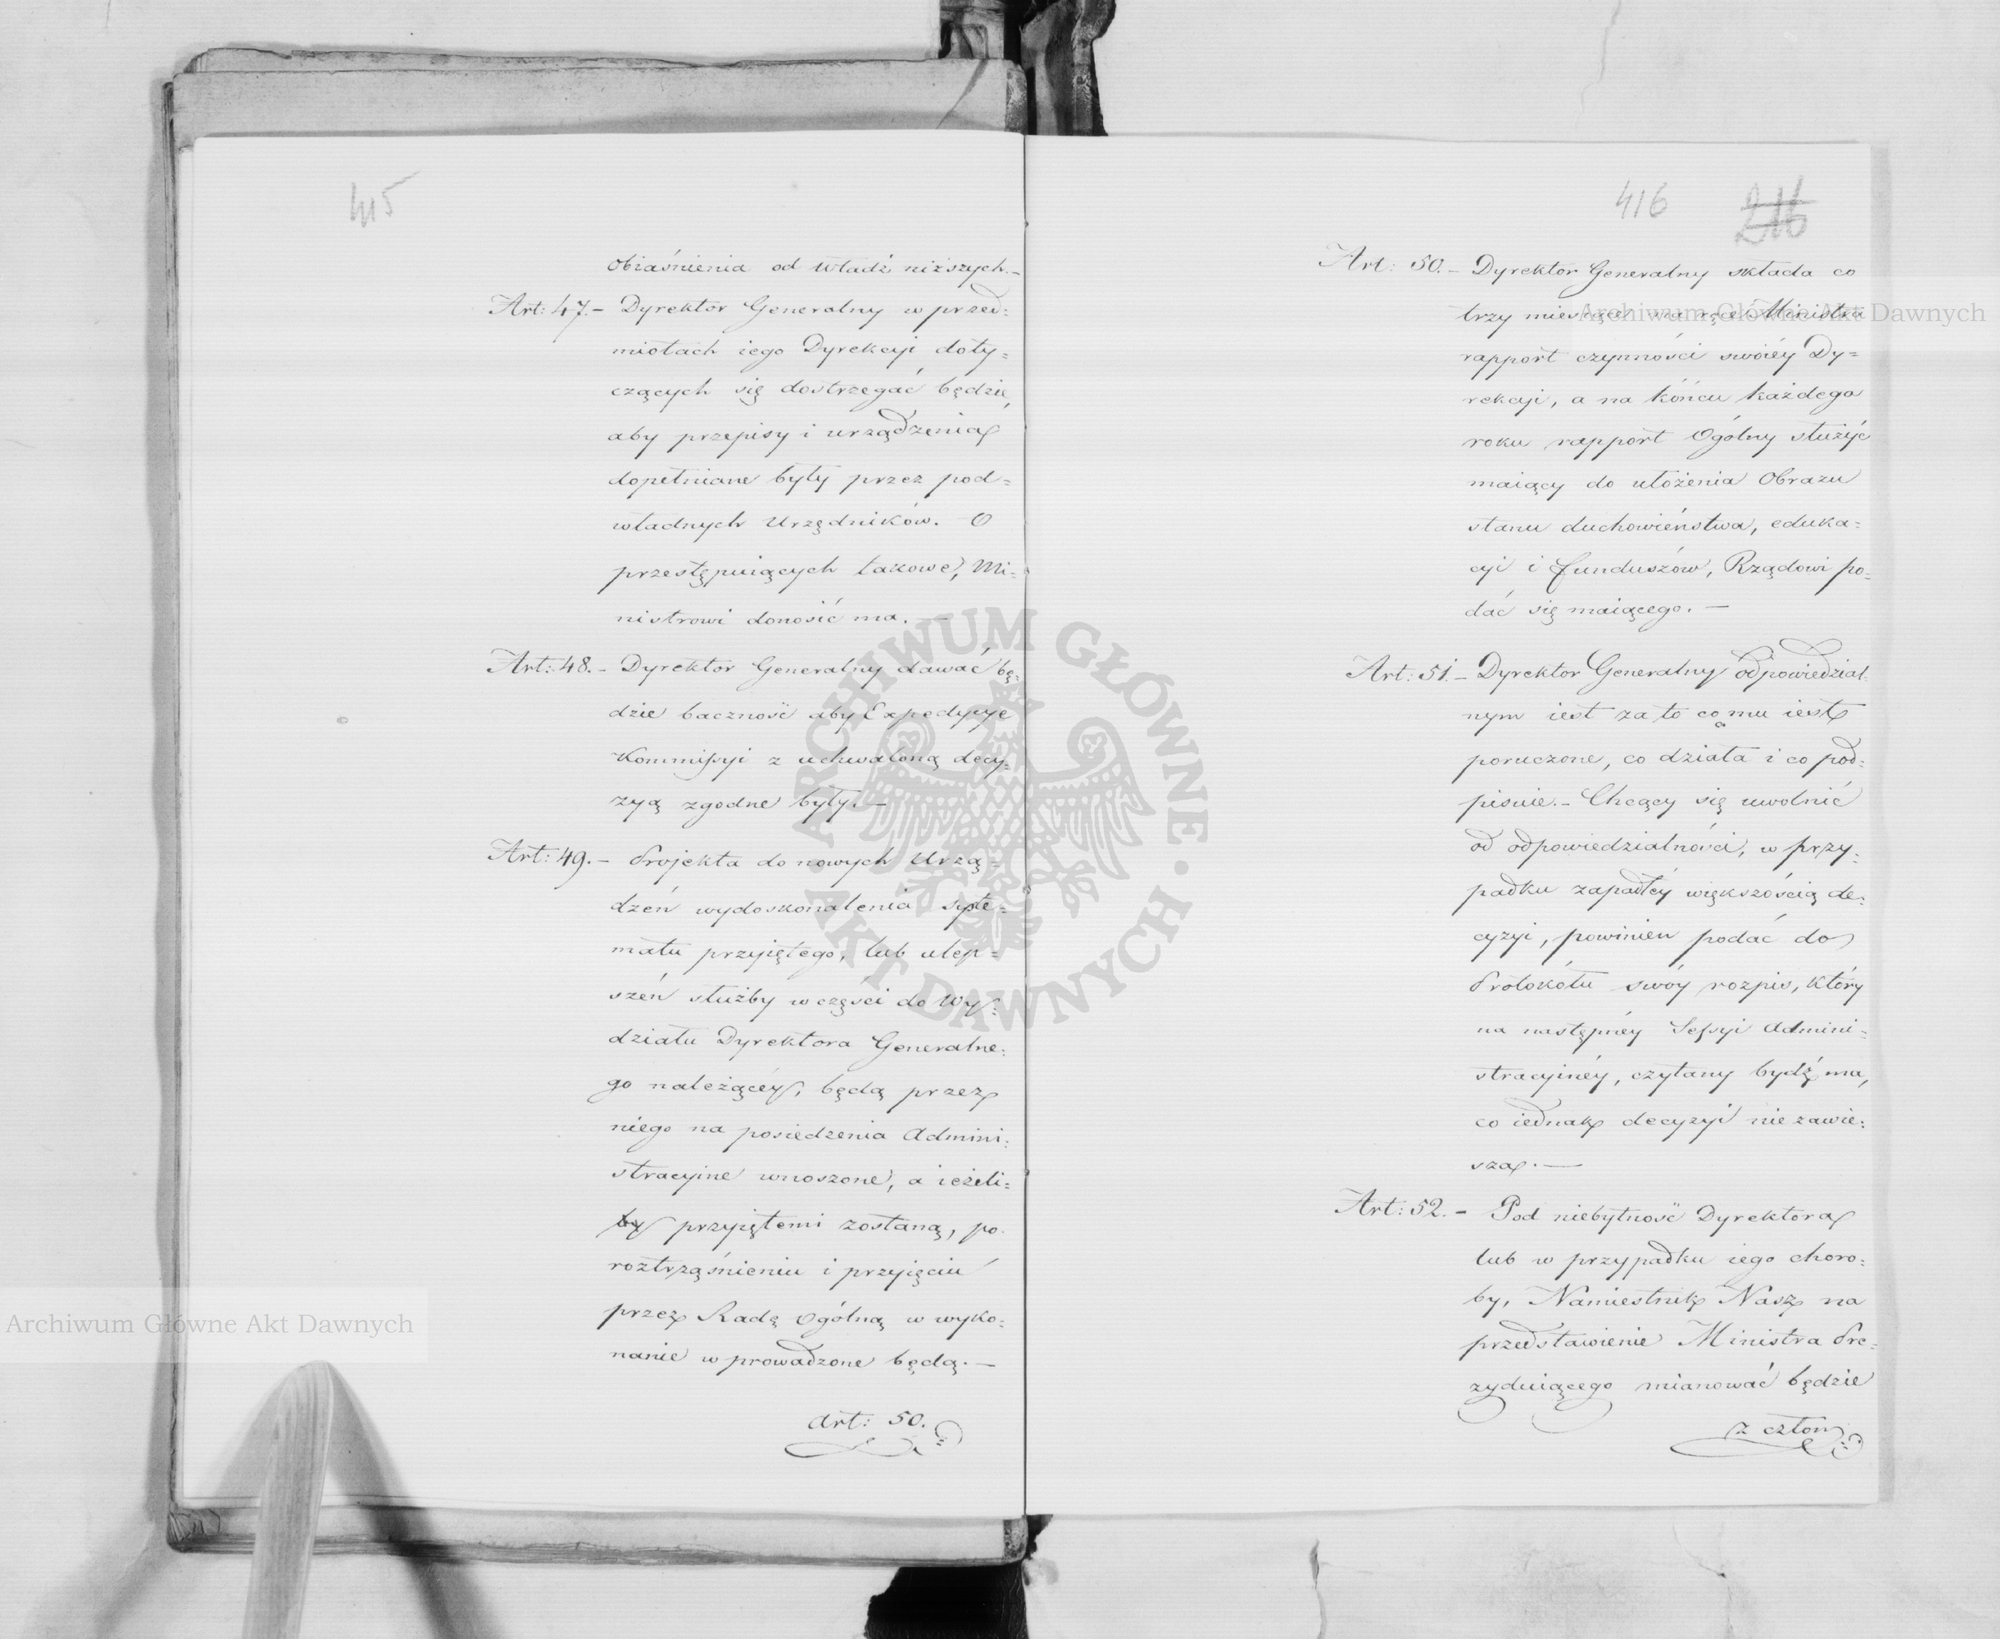 415
obiaśnienia od Władz niższych.–
Art: 47.– Dyrektor Generalny w przed=
miotach iego Dyrekcyi doty=
czących się dostrzegać będzie,
aby przepisy i urządzenia
dopełniane były przez pod=
władnych Urzędników. O
przestępuiących takowe, Mi=
nistrowi donosić ma.–
Art: 48.– Dyrektor Generalny dawać bę=
dzie baczność aby Expedycye
Kommissyi z uchwaloną decy=
zyą zgodne były.–
Art: 49.– Projekta do nowych Urzą=
dzeń wydoskonalenia syste=
matu przyiętego, lub ulep=
szeń służby w części do Wy=
działu Dyrektora Generalne=
go należącéy, będą przez
niego na posiedzenia Admini=
stracyine wnoszone, a ieżeli=
by przyiętemi zostaną, po
roztrząśnieniu i przyięciu
przez Radę Ogólną w wyko=
nanie wprowadzone będą.–
Art: 50.
416 216
Art: 50.– Dyrektor Generalny składa co
trzy miesiące na ręce Ministra
rapport czynności swoiéy Dy=
rekcyi, a na końcu każdego
roku rapport Ogólny służyć
maiący do ułożenia Obrazu
stanu duchowieństwa, eduka=
cyi i funduszów, Rządowi po=
dać się maiącego.–
Art: 51.– Dyrektor Generalny odpowiedzial=
nym iest za to co mu iest
poruczone, co działa i co pod=
pisuie.– Chcący się uwolnić
od odpowiedzialności, w przy=
padku zapadłéy większością de=
cyzyi, powinien podać do
Protokółu swóy rozpis, który
na następnéy Sessyi Admini=
stracyinéy, czytany bydź ma,
co iednak decyzyi nie zawie=
sza.–
Art: 52.– Pod niebytność Dyrektora
lub w przypadku iego choro=
by, Namiestnik Nasz na
przedstawienie Ministra Pre=
zyduiącego mianować będzie
z człon
Archiwum Główne Akt Dawnych
Archiwum Główne Akt Dawnych
ARCHIWUM GŁÓWNE · AKT DAWNYCH ·